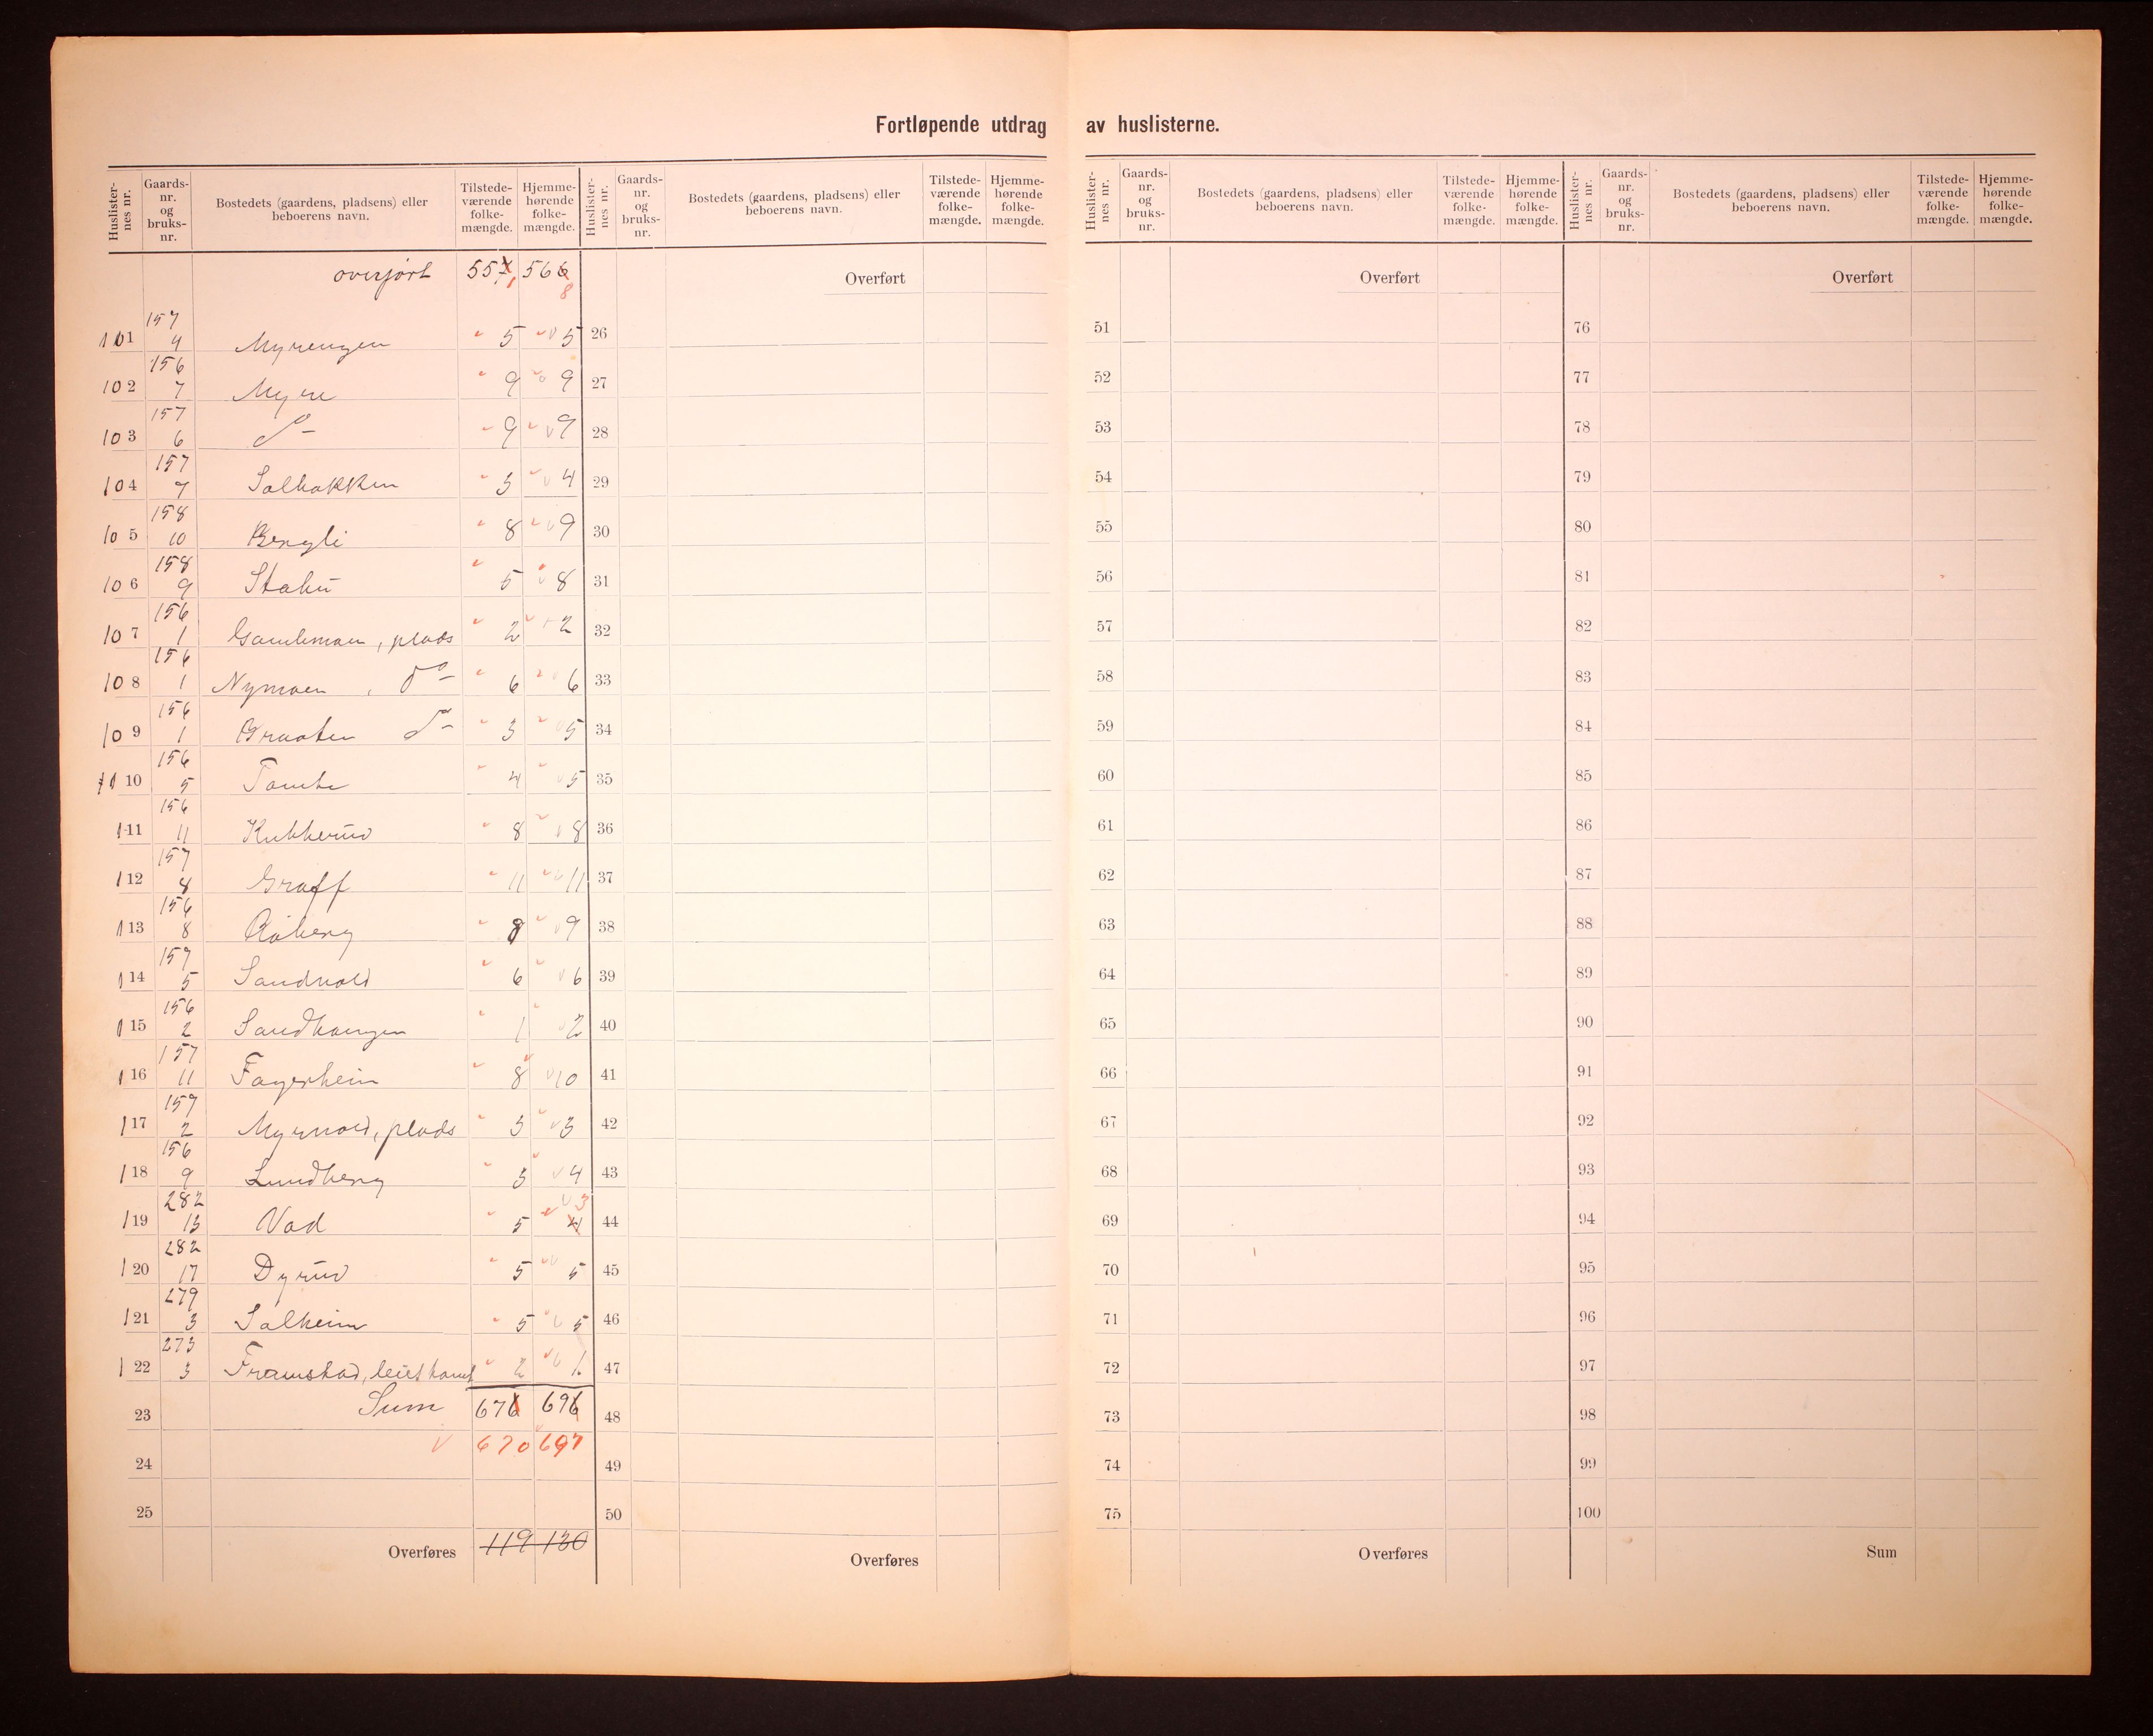 Fortløpende utdrag av huslisterne.
Huslister-nes nr. Gaards-nr. og bruks-nr. Bostedets (gaardens, pladsens) eller beboerens navn. Tilstede-værende folke-mængde. Hjemme-hørende folke-mængde. Huslister-nes nr. Gaards-nr. og bruks-nr. Bostedets (gaardens, pladsens) eller beboerens navn. Tilstede-værende folke-mængde. Hjemme-hørende folke-mængde. Huslister-nes nr. Gaards-nr. og bruks-nr. Bostedets (gaardens, pladsens) eller beboerens navn. Tilstede-værende folke-mængde. Hjemme-hørende folke-mængde. Huslister-nes nr. Gaards-nr. og bruks-nr. Bostedets (gaardens, pladsens) eller beboerens navn. Tilstede-værende folke-mængde. Hjemme-hørende folke-mængde.
overført 551 568 Overført Overført Overført
101 157 4 Myrengen 5 5 26 51 76
102 156 7 Myre 9 9 27 52 77
103 157 6 do 9 9 28 53 78
104 157 7 Solbakken 3 4 29 54 79
105 158 10 Bergli 8 9 30 55 80
106 158 9 5 8 31 56 81
107 156 1 Gamlemoen, plads 2 2 32 57 82
108 156 1 Nymoen, do 6 6 33 58 83
109 156 1 Braaten do 3 5 34 59 84
110 156 5 Tomte 4 5 35 60 85
111 156 11 Kukkerud 8 8 36 61 86
112 157 8 Graff 11 11 37 62 87
113 156 8 Aaberg 8 9 38 63 88
114 157 5 Sandvold 6 6 39 64 89
115 156 2 Sandhaugen 1 2 40 65 90
116 157 11 Fagerheim 8 10 41 66 91
117 157 2 Myrvold, plads 3 3 42 67 92
118 156 9 Lundberg 3 4 43 68 93
119 282 13 Vad 5 4 3 44 69 94
120 282 17 Dyrud 5 5 45 70 95
121 279 3 Solheim 5 5 46 71 96
122 273 3 Framstad, leiet 2 1 47 72 97
23 Sum 676 696 48 73 98
670 697
24 49 74 99
25 50 75 100
Overføres 119 130 Overføres Overføres Sum